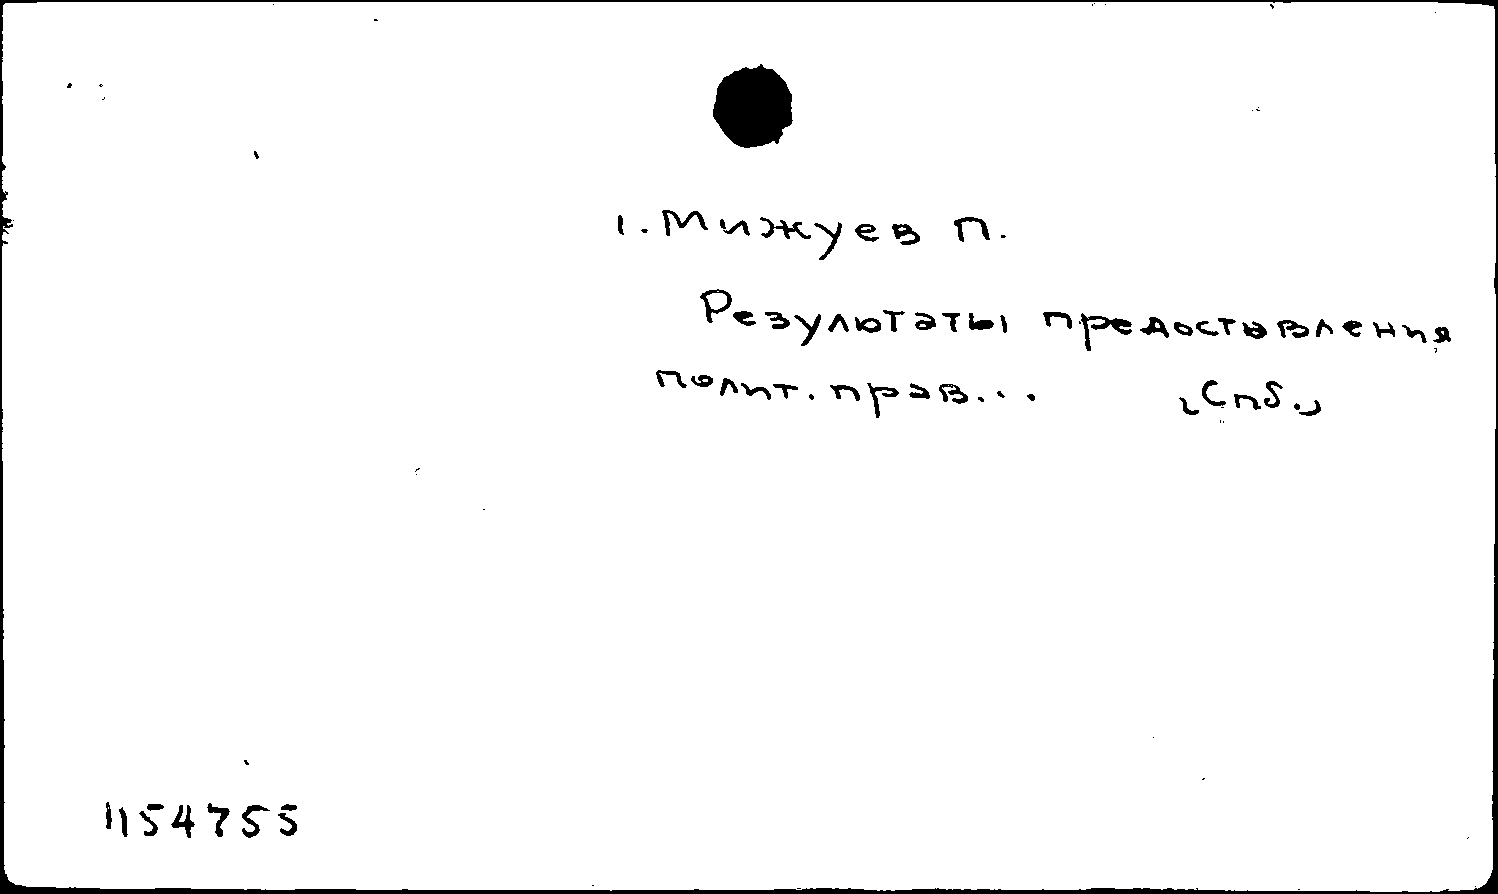 1. Мижуев П.
Результаты предоставления
полит. прав... [Спб.]
1154755